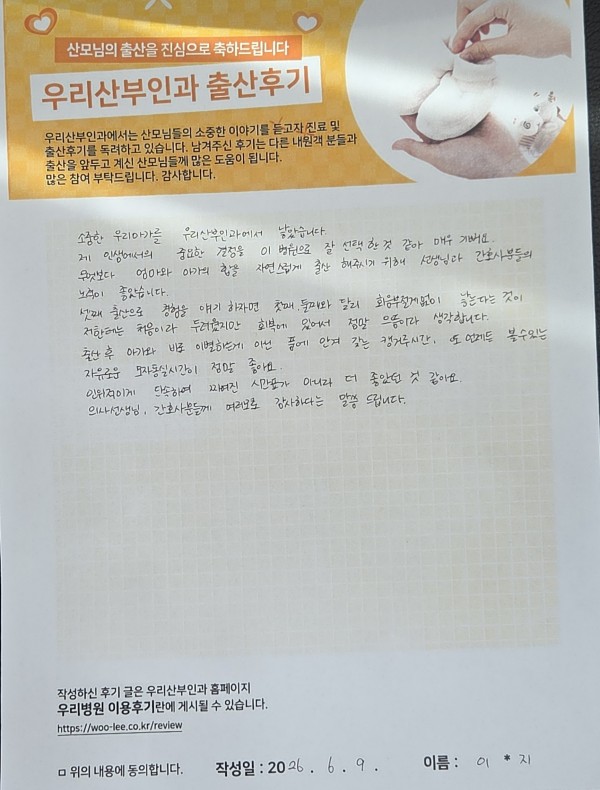 산모님의 출산을 진심으로 축하드립니다
우리산부인과 출산후기
우리산부인과에서는 산모님들의 소중한 이야기를 듣고자 진료 및
출산후기를 독려하고 있습니다. 남겨주신 후기는 다른 내원객 분들과
출산을 앞두고 계신 산모님들께 많은 도움이 됩니다.
많은 참여 부탁드립니다. 감사합니다.
소중한 우리아가를 우리산부인과에서 낳았습니다.
제 인생에서의 중요한 결정을 이 병원으로 잘 선택한 것 같아 매우 기뻐요.
무엇보다 엄마와 아가의 힘을 자연스럽게 출산 해주시기 위해 선생님과 간호사분들의
노력이 좋았습니다.
셋째 출산으로 경험을 얘기 하자면 첫째, 둘째와 달리 회음부절개없이 낳는다는 것이
저한테는 처음이라 두려웠지만 회복에 있어서 정말 으뜸이라 생각합니다.
출산 후 아가와 바로 이별하는게 아닌 품에 안겨 갖는 캥거루시간, 또 언제든 볼수있는
자유로운 모자동실시간이 정말 좋아요.
인위적이게 단속하여 짜여진 시간표가 아니라 더 좋았던 것 같아요.
의사선생님, 간호사분들께 여러모로 감사하다는 말씀 드립니다.
작성하신 후기 글은 우리산부인과 홈페이지
우리병원 이용후기란에 게시될 수 있습니다.
https://woo-lee.co.kr/review
ㅁ 위의 내용에 동의합니다. 작성일 : 2026. 6. 9. 이름 : 이 * 지